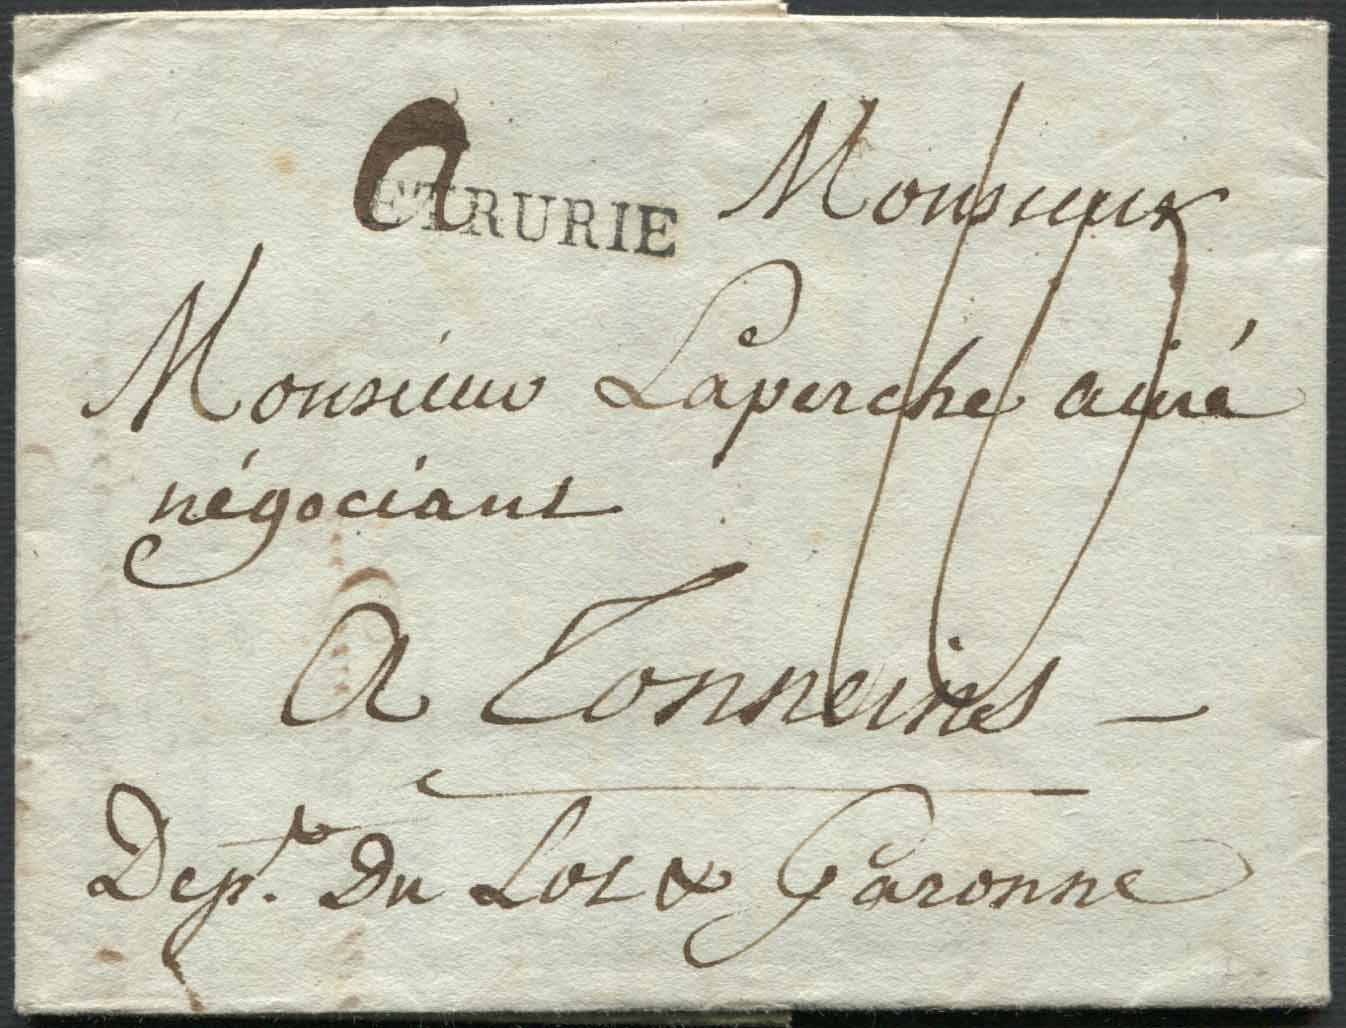 a
ETRURIE
Monsieur
Monsieur Laperche ainé
négociant
A Tonneins
Dept. Du Lot & Garonne